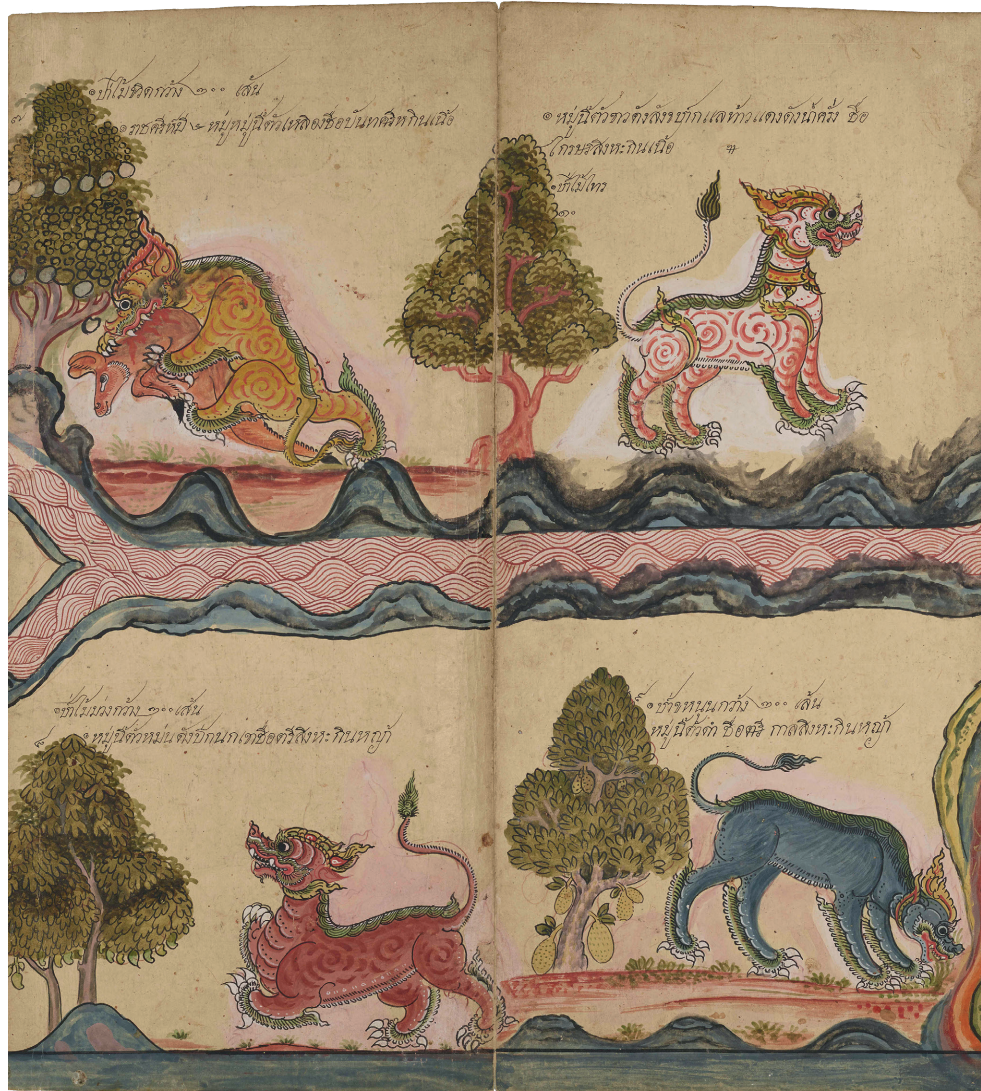 ๏ป่าไม้ขวิดกว้าง ๒๐๐ เส้น
๗ ๏ราชศรีหมี ๒ หมู่หมู่นี้ตัวเหลืองชื่อบันทศรีหกินเนื้อ
๏ หมู่นี้ตัวขาวดังสังข ปากแลท้าวแดงดังน้ำครั่ง ชื่อ
ไกรษรสิงหะกินเนื้อ
๏ป่าไม้ไทร
๑๐
๏ป่าไม้มวงกว้าง ๓๐๐ เส้น
๘ ๏หมู่นี้ตัวหม่นดังปีกนกเขาชื่อตรีสิงหะกินหญ้า
๙ ๏ป่าขหนุนกว้าง ๓๐๐ เส้น
หมู่นี้ตัวดำ ชื่อตรี กาลสิงหะกินหญ้า